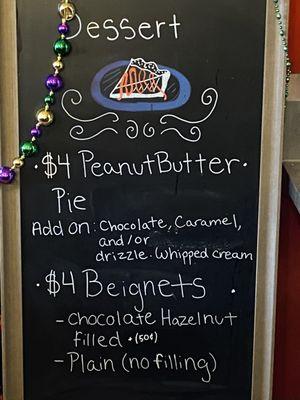 Dessert
· $4 PeanutButter ·
Pie
Add on: Chocolate, Caramel,
and/or
drizzle. Whipped cream
· $4 Beignets ·
- Chocolate Hazelnut
filled +(50¢)
- Plain (no filling)